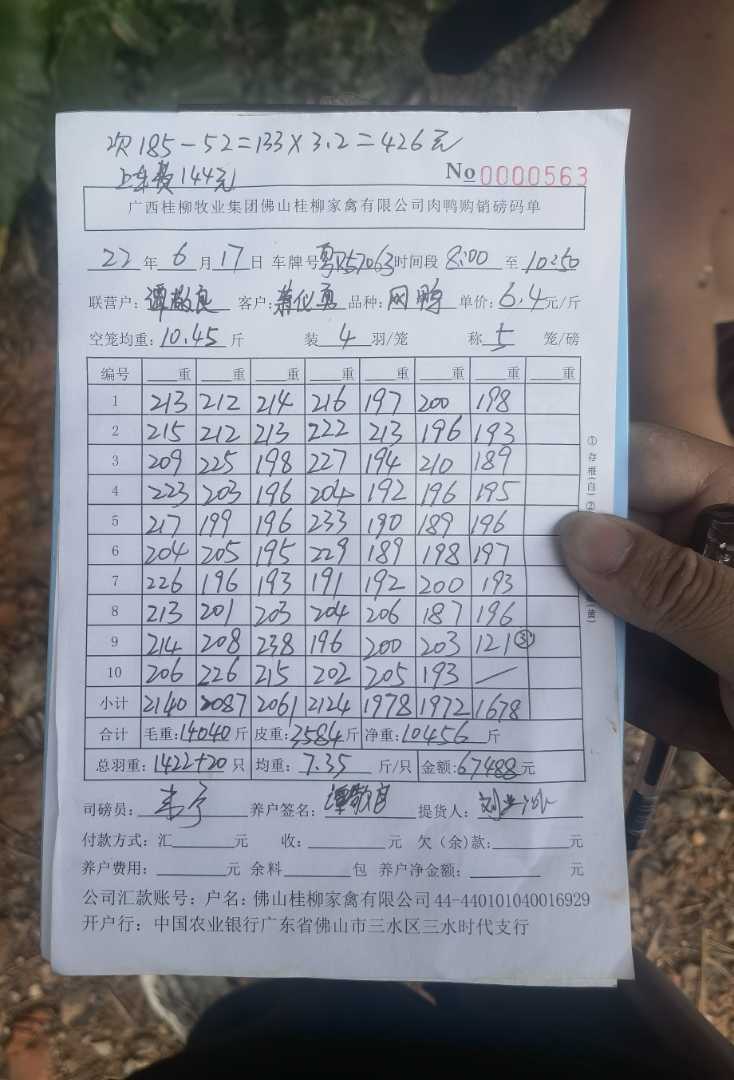 次185-52=133×3.2=426元
上车费144元
No 0000563
广西桂柳牧业集团佛山桂柳家禽有限公司肉鸭购销磅码单
22年6月17日 车牌号粤R57063时间段8:00至10:50
联营户:谭敬良 客户:萧化勇 品种: 鸭 单价:6.4元/斤
空笼均重:10.45斤 装4羽/笼 称5笼/磅
编号 重 重 重 重 重 重 重 重
1 213 212 214 216 197 200 198
2 215 212 213 222 213 196 193
3 209 225 198 227 194 210 189
4 223 203 196 204 192 196 195
5 217 199 196 233 190 189 196
6 204 205 195 229 189 198 197
7 226 196 193 191 192 200 193
8 213 201 203 204 206 187 196
9 214 208 238 196 200 203 121③
10 206 226 215 202 205 193 —
小计 2140 2087 2061 2124 1978 1972 1678
合计 毛重:14040斤 皮重:3584斤 净重:10456斤
总羽重:1422+20只 均重:7.35斤/只 金额:67488元
司磅员: 养户签名:谭敬良 提货人:
付款方式:汇 元 收: 元 欠(余)款: 元
养户费用: 元 余料 包 养户净金额: 元
公司汇款账号:户名:佛山桂柳家禽有限公司44-440101040016929
开户行:中国农业银行广东省佛山市三水区三水时代支行
①存根(白)②